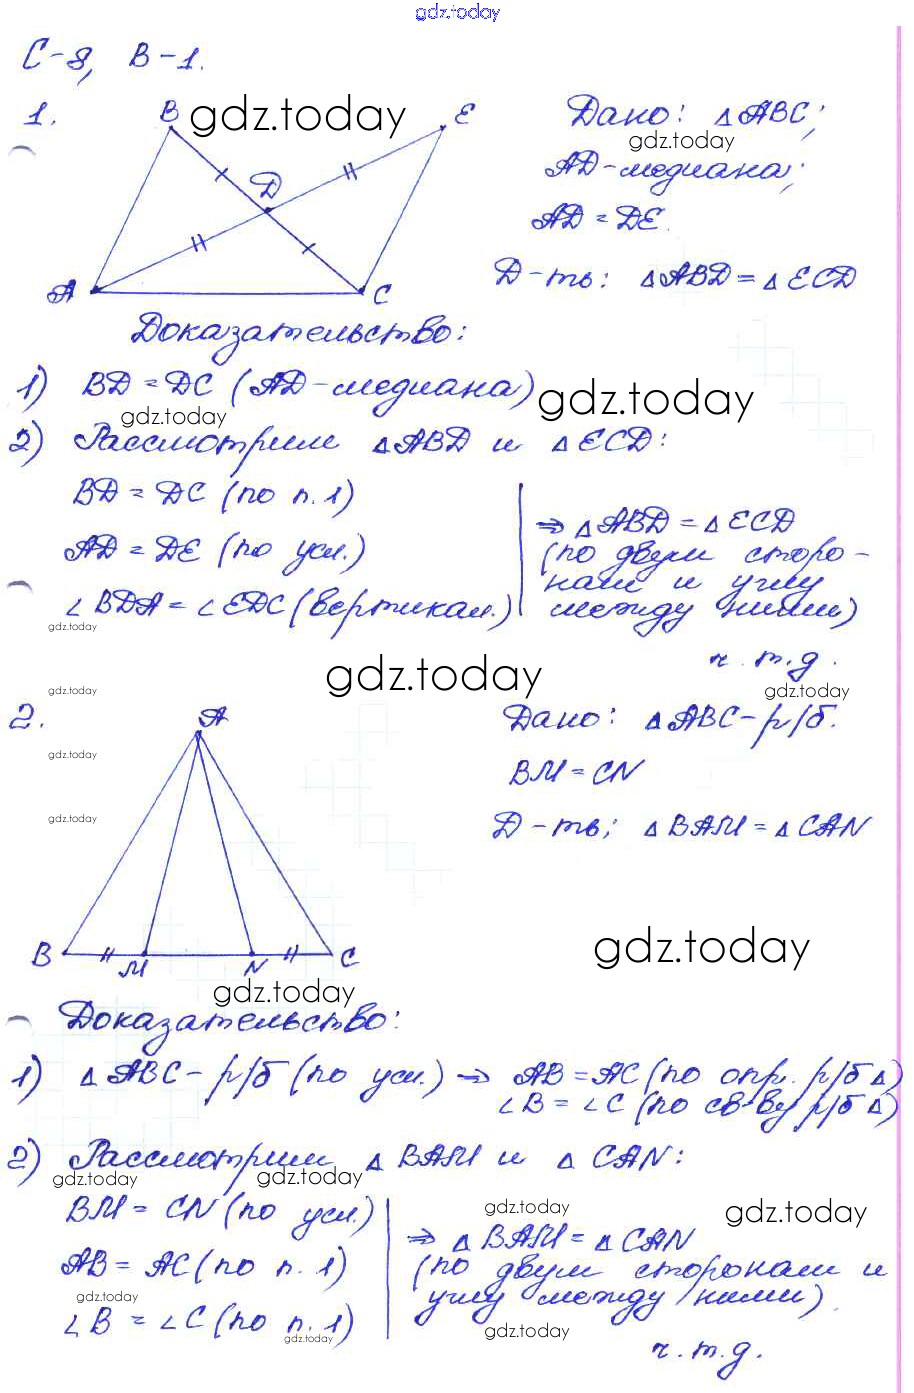 gdz.today
С-8, В-1.
1.
B
gdz.today
E
D
A
C
Дано: △ABC;
gdz.today
AD-медиана;
AD = DE.
Д-ть: △ABD = △ECD
Доказательство:
1) BD = DC (AD-медиана)
gdz.today
gdz.today
2) Рассмотрим △ABD и △ECD:
BD = DC (по п. 1)
AD = DE (по усл.)
∠BDA = ∠EDC (вертикал.)
⇒ △ABD = △ECD
(по двум сторо-
нам и углу
между ними)
gdz.today
ч.т.д.
gdz.today
gdz.today
gdz.today
2.
gdz.today
gdz.today
A
B
M
N
C
Дано: △ABC - р/б.
BM = CN
Д-ть; △BAM = △CAN
gdz.today
gdz.today
Доказательство:
1) △ABC - р/б (по усл.) ⇒ AB = AC (по опр. р/б △)
∠B = ∠C (по св-ву р/б △)
2) Рассмотрим △BAM и △CAN:
gdz.today
gdz.today
BM = CN (по усл.)
AB = AC (по п. 1)
gdz.today
∠B = ∠C (по п. 1)
gdz.today
gdz.today
gdz.today
⇒ △BAM = △CAN
(по двум сторонам и
углу между ними)
gdz.today
ч.т.д.